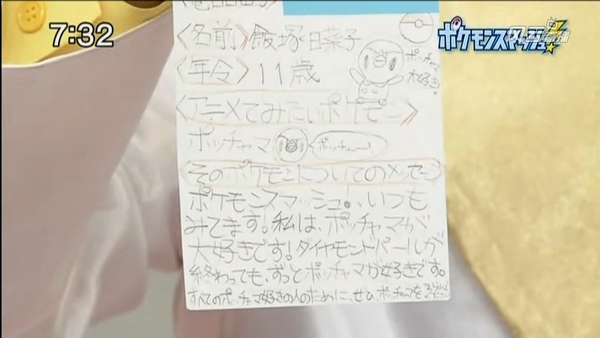 7:32
ポケモンスマッシュ
<名前>飯塚日菜子
<年令>11歳
ポッチャマ
大好き!
<アニメでみたいポケモン>
ポッチャマ ポッチャー!
<そのポケモンについてのメッセージ>
ポケモンスマッシュ!、いつも
みてます。私は、ポッチャマが
大好きです!ダイヤモンドパールが
終わっても、ずっとポッチャマが好きです。
すべてのポッチャマ好きの人のために、ぜひ、ポッチャマを